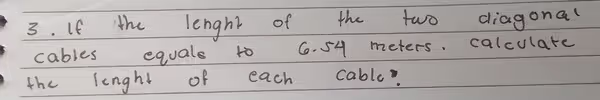 3. If the lenght of the two diagonal
cables equals to 6.54 meters. calculate
the lenght of each cable?